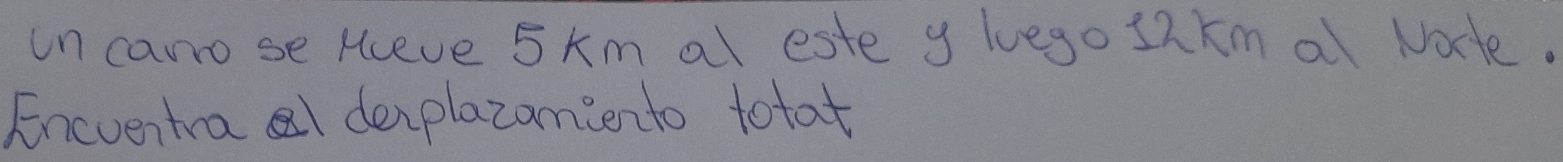 un carro se Mueve 5 Km al este y luego 12 Km al Norte.
Encuentra el desplazamiento total